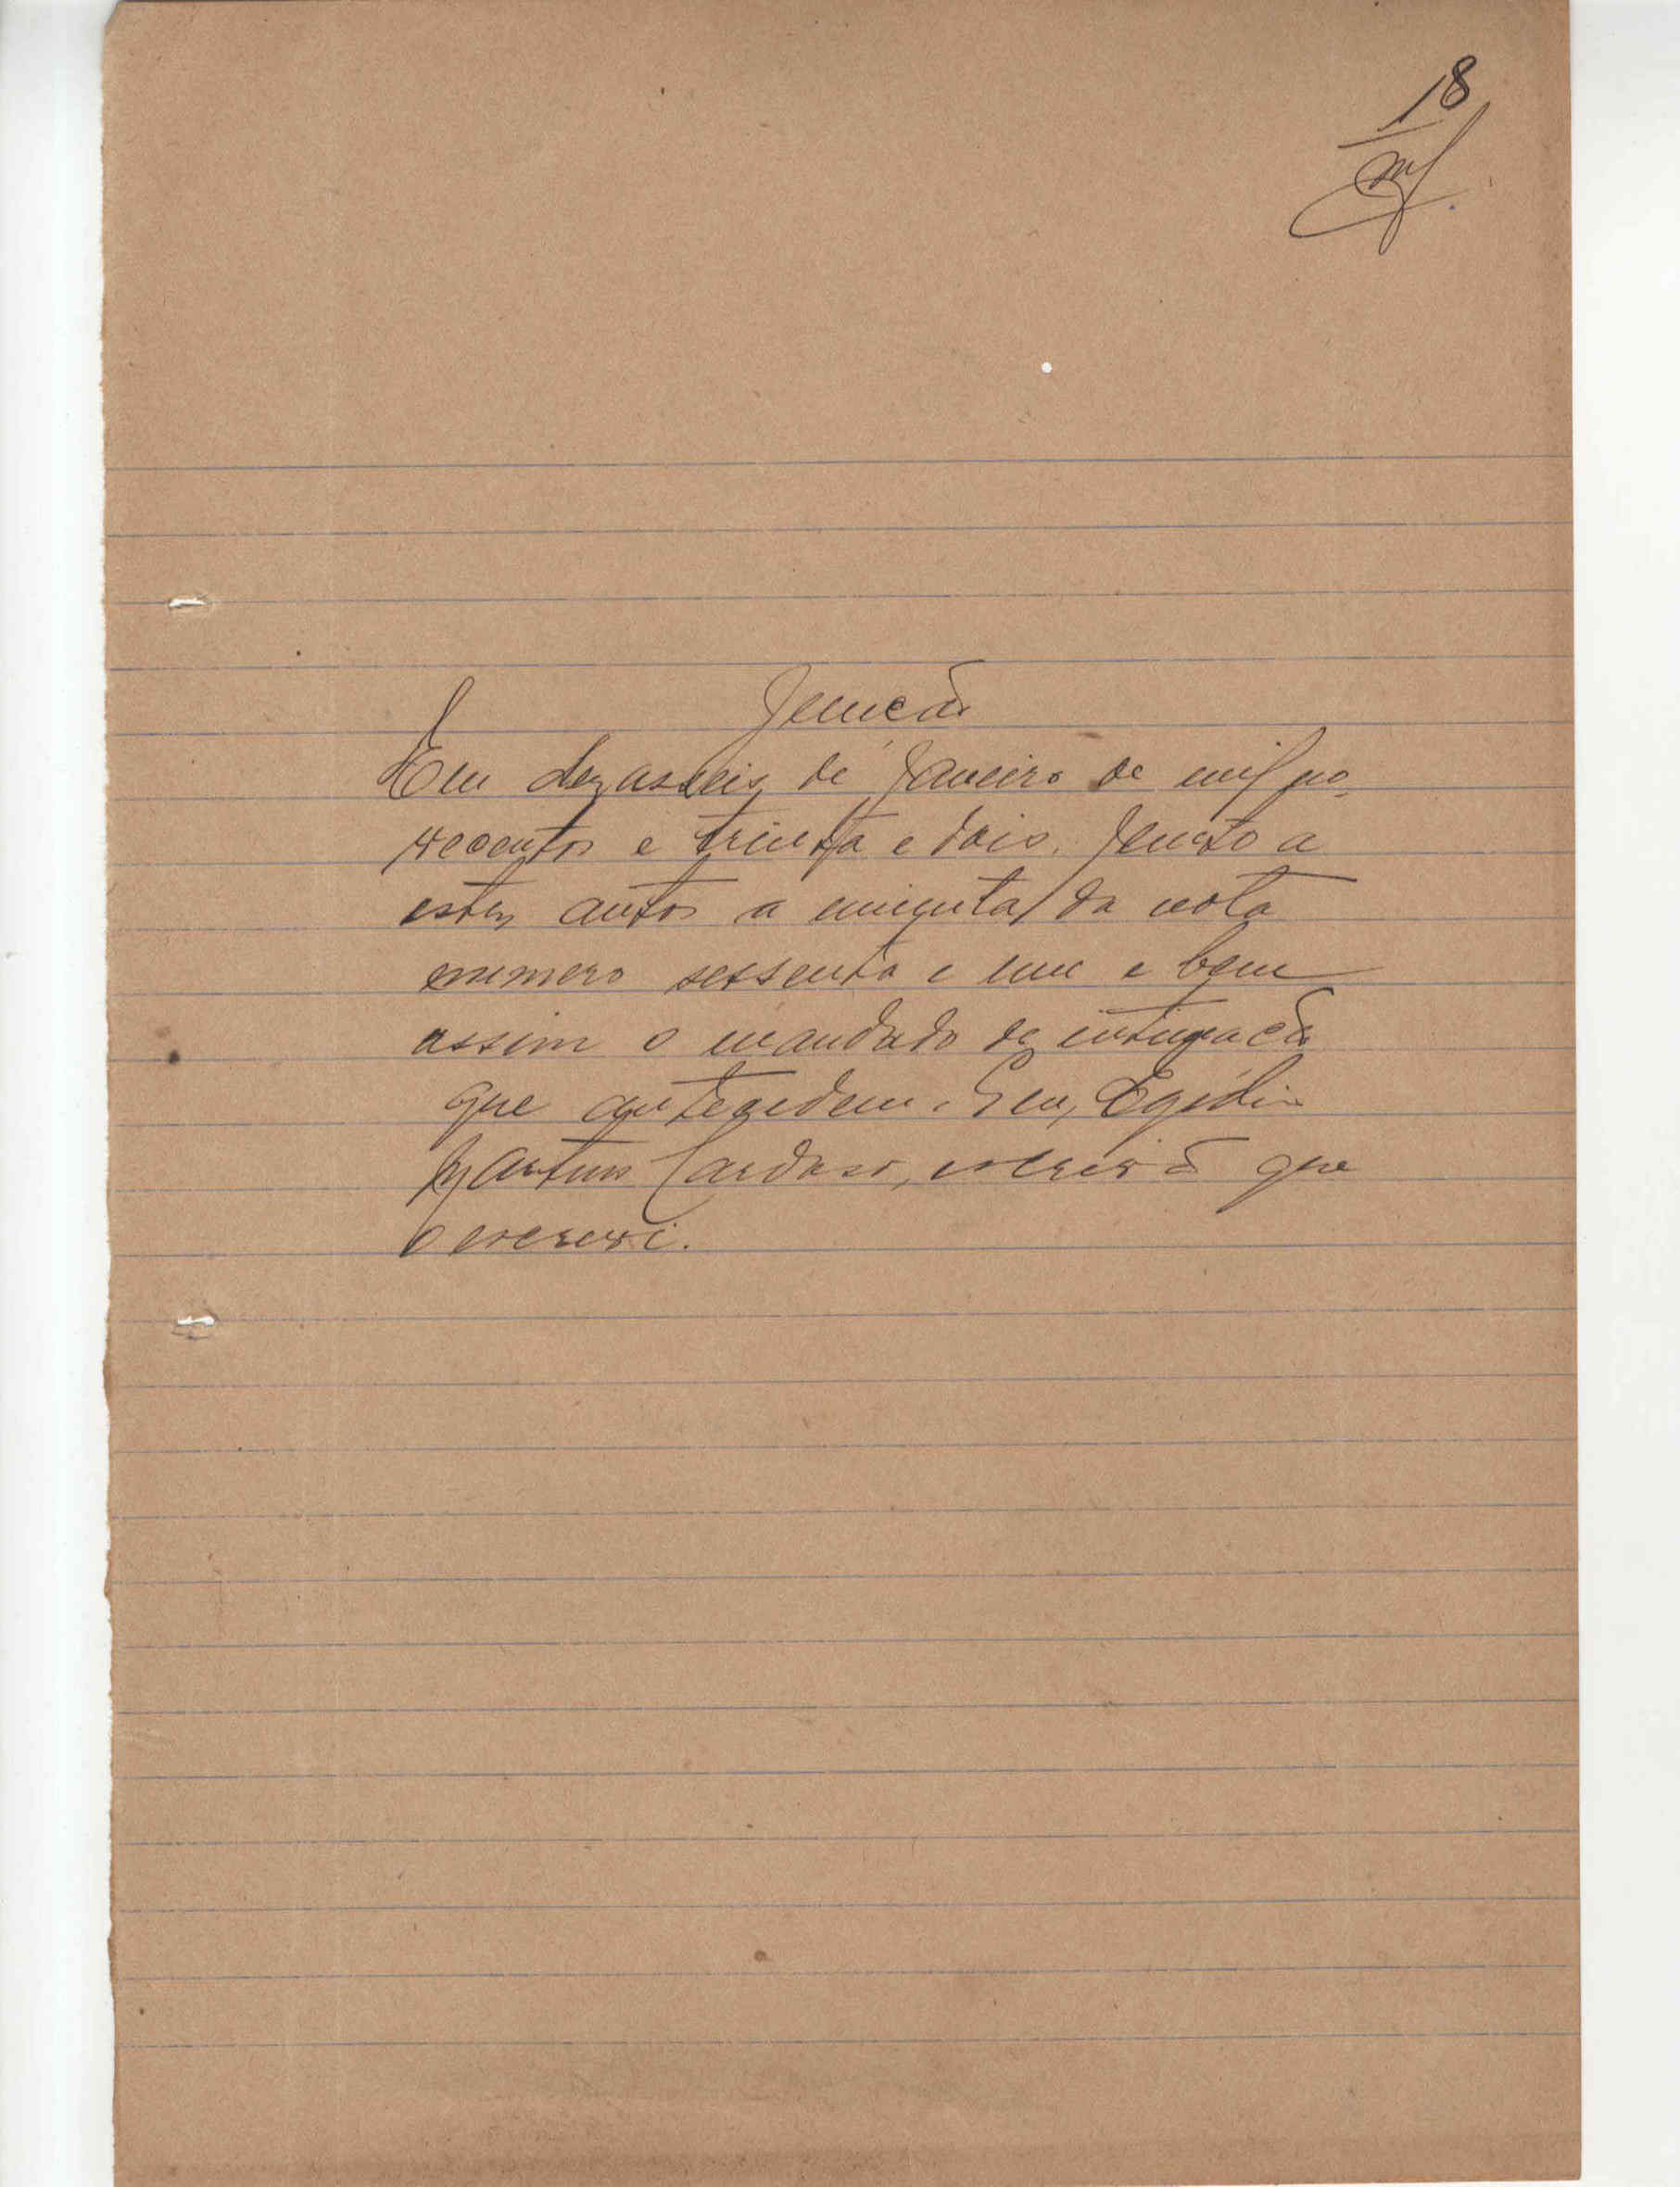 18
Junção
Em dezasseis de Janeiro de mil no-
vecentos e trinta e dois, junto a
estes autos a minuta da nota
numero sessenta e um e bem
assim o mandado de intimação
que antecedem. Eu, Egidio
Martins Cardoso, escrivã que
o escrevi.